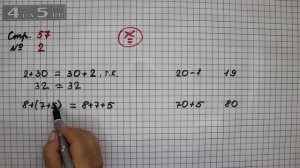 Стр. 57
№ 2
х =
2+30 = 30+2, т.к.
32 = 32
20-1 19
8+(7+5) = 8+7+5
70+5 80